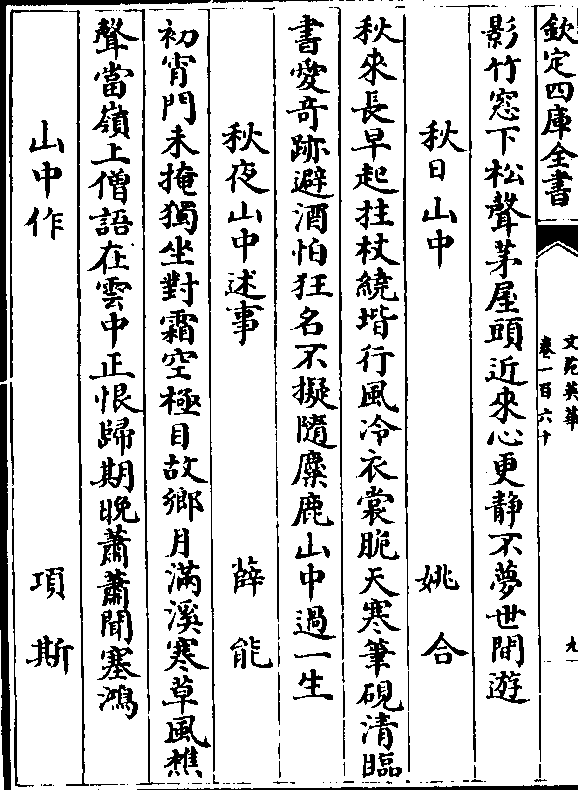 欽定四庫全書
文苑英華
卷一百六十
九
影竹窓下松聲茅屋頭近來心更静不夢世間遊
秋日山中 姚合
秋來長早起拄杖繞堦行風冷衣裳脆天寒筆硯清臨
書愛奇跡避酒怕狂名不擬隨麋鹿山中過一生
秋夜山中述事 薛能
初宵門未掩獨坐對霜空極目故鄉月滿溪寒草風樵
聲當嶺上僧語在雲中正恨歸期晚蕭蕭聞塞鴻
山中作 項斯